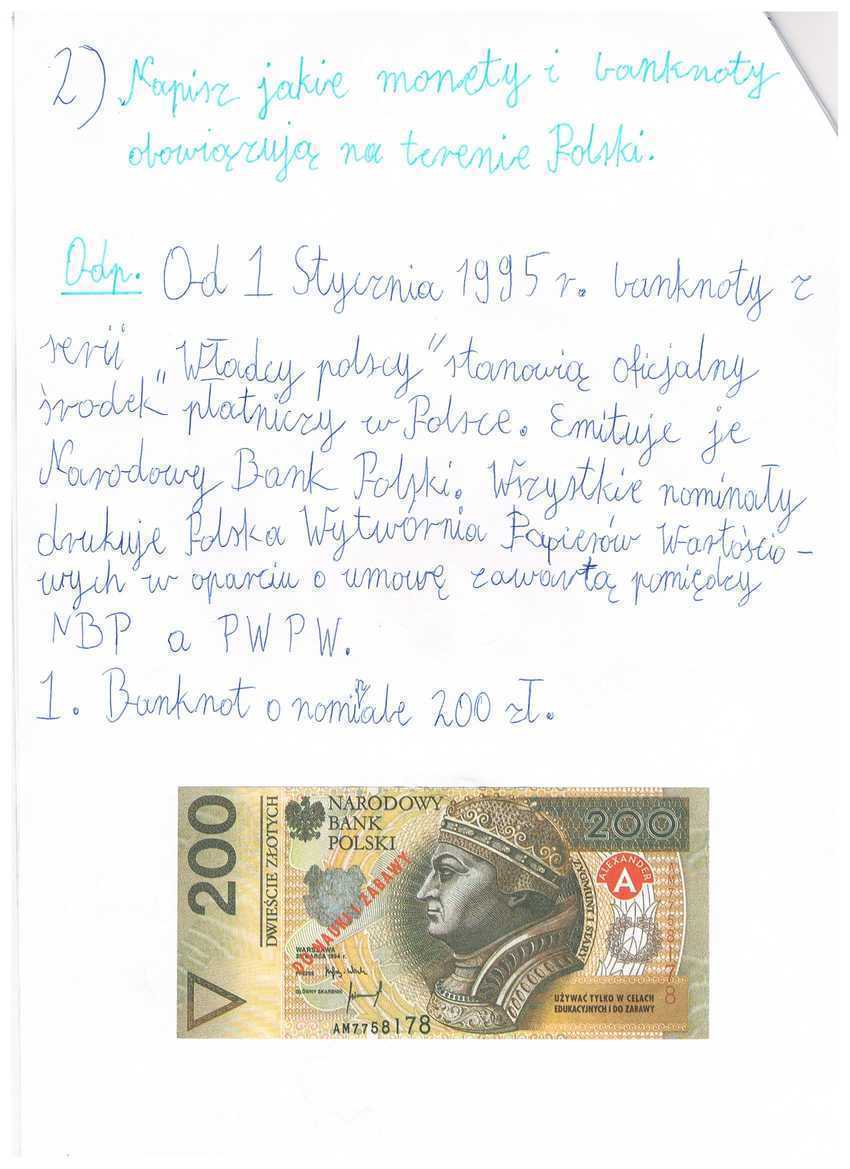 2) Napisz jakie monety i banknoty
obowiązują na terenie Polski.
Odp. Od 1 Stycznia 1995 r. banknoty z
serii „Władcy polscy” stanowią oficjalny
środek płatniczy w Polsce. Emituje je
Narodowy Bank Polski. Wszystkie nominały
drukuje Polska Wytwórnia Papierów Wartościo-
wych w oparciu o umowę zawartą pomiędzy
NBP a PWPW.
1. Banknot o nominale 200 zł.
200
DWIEŚCIE ZŁOTYCH
NARODOWY
BANK
POLSKI
DO NAUKI I ZABAWY
WARSZAWA
25 MARCA 1994 r.
PREZES
GŁÓWNY SKARBNIK
AM7758178
200
ZYGMUNT I STARY
ALEXANDER
A
UŻYWAĆ TYLKO W CELACH
EDUKACYJNYCH I DO ZABAWY